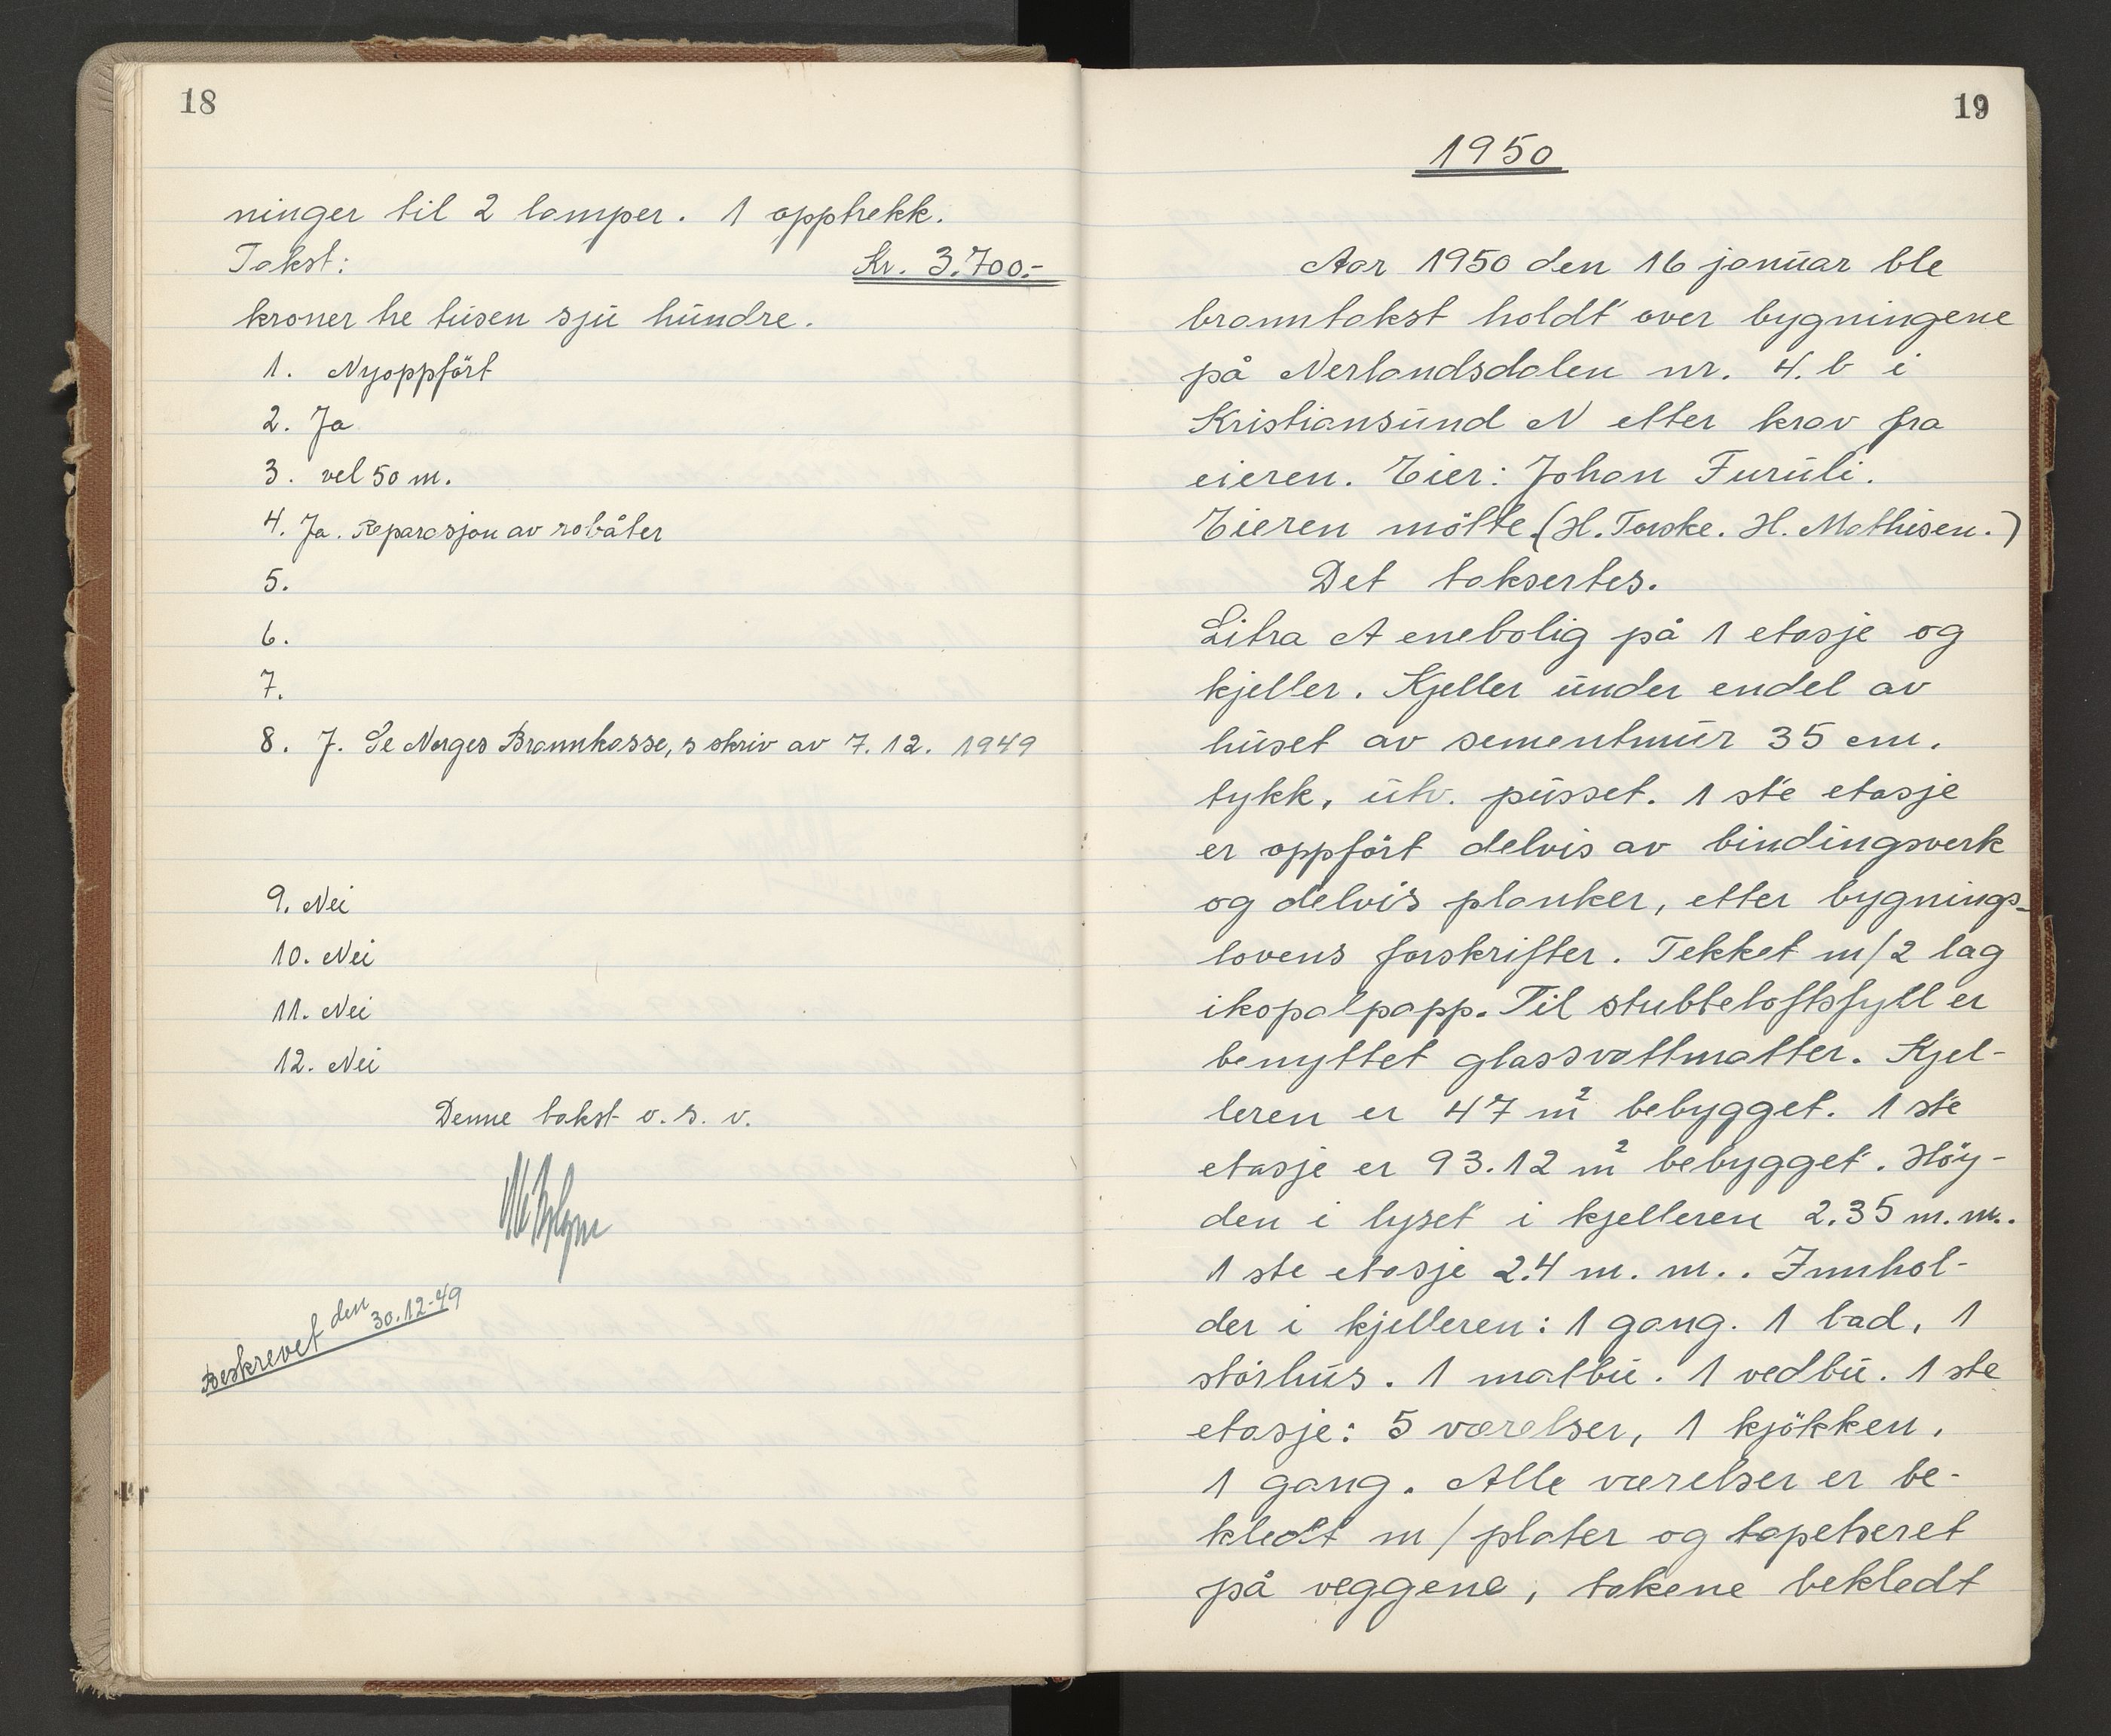 18
ninger til 2 lamper. 1 opptrekk.
Takst: Kr. 3.700.-
kroner tre tusen sju hundre.
1. Nyoppfört
2. Ja
3. vel 50 m.
4. Ja. Reparasjon av robåter
5.
6.
7.
8. J. Se Norges Brannkasse, s skriv av 7. 12. 1949
9. Nei
10. Nei
11. Nei
12. Nei
Denne takst o. s. v.
Beskrevet den 30.12-49
19
1950
Aar 1950 den 16 januar ble
branntakst holdt over bygningene
på Nerlandsdalen nr. 4. b i
Kristiansund N etter krav fra
eieren. Eier: Johan Furuli.
Eieren mötte. (H. Torske. H. Mathisen.)
Det taksertes.
Litra A enebolig på 1 etasje og
kjeller. Kjeller under endel av
huset av sementmur 35 cm.
tykk, utv. pusset. 1 ste etasje
er oppfört delvis av bindingsverk
og delvis planker, etter bygnings-
lovens forskrifter. Tekket m/2 lag
ikopalpapp. Til stubbeloftsfyll er
benyttet glassvattmatter. Kjel-
leren er 47 m² bebygget. 1 ste
etasje er 93.12 m² bebygget. Höy-
den i lyset i kjelleren 2.35 m. m..
1 ste etasje 2.4 m. m.. Innhol-
der i kjelleren: 1 gang. 1 bad, 1
störhus. 1 matbu. 1 vedbu. 1 ste
etasje: 5 værelser, 1 kjökken,
1 gang. Alle værelser er be-
kledt m/plater og tapetseret
på veggene, takene bekledt